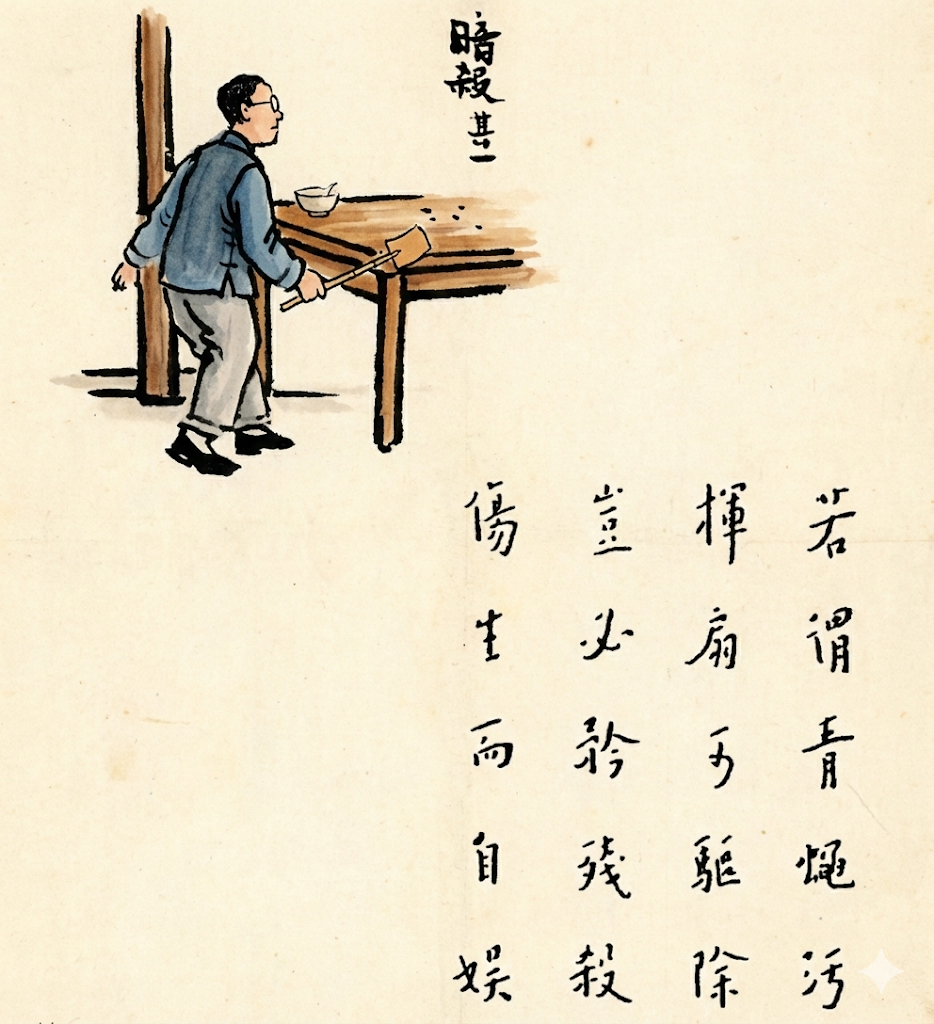 暗殺 其一
若謂青蠅污
揮扇可驅除
豈必矜殘殺
傷生而自娛